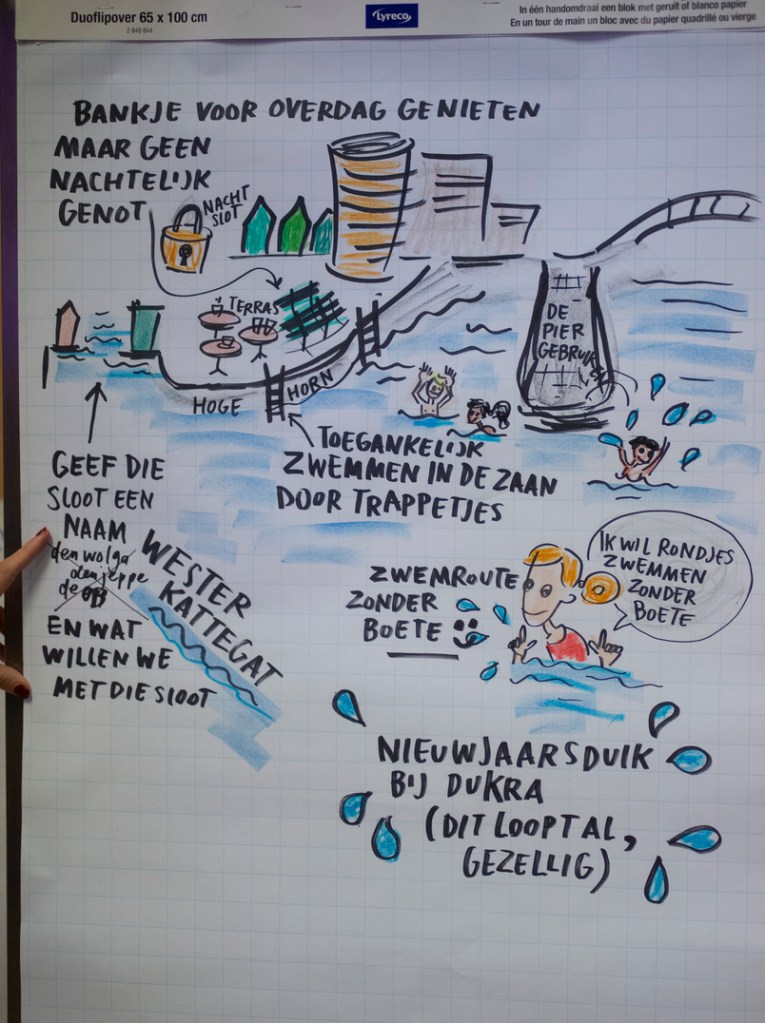 Duoflipover 65 x 100 cm
2 848 844
Lyreco
In één handomdraai een blok met geruit of blanco papier
En un tour de main un bloc avec du papier quadrillé ou vierge
BANKJE VOOR OVERDAG GENIETEN
MAAR GEEN
NACHTELIJK
GENOT
NACHT
SLOT
TERRAS
HOGE HORN
DE
PIER
GEBRUIKEN
TOEGANKELIJK
ZWEMMEN IN DE ZAAN
DOOR TRAPPETJES
GEEF DIE
SLOOT EEN
NAAM
den wolga
den jeppe
de
EN WAT
WILLEN WE
MET DIE SLOOT
WESTER
KATTEGAT
ZWEMROUTE
ZONDER
BOETE
IK WIL RONDJES
ZWEMMEN
ZONDER
BOETE
NIEUWJAARSDUIK
BIJ DUKRA
(DIT LOOPT AL,
GEZELLIG)